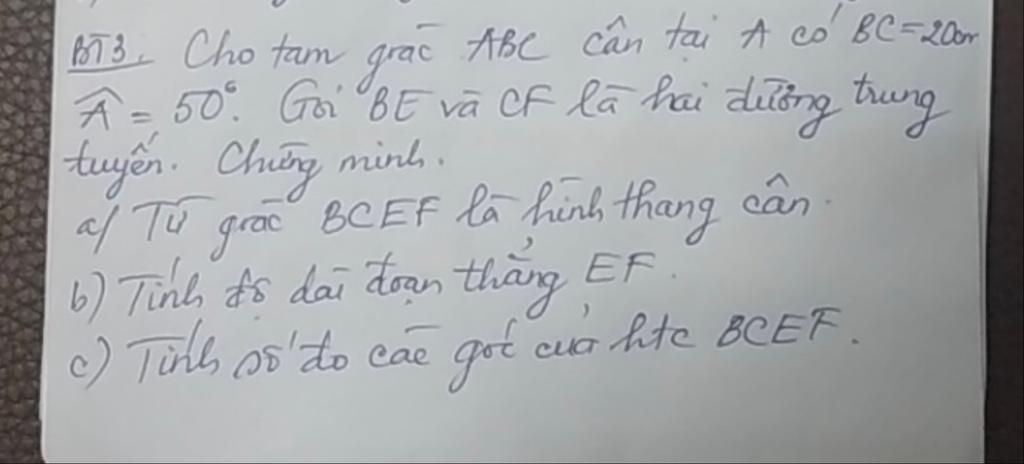 BT3. Cho tam giác ABC cân tại A có BC=20cm
Â = 50°. Gọi BE và CF là hai đường trung
tuyến. Chứng minh.
a/ Tứ giác BCEF là hình thang cân.
b) Tính độ dài đoạn thẳng EF.
c) Tính số đo các góc của htc BCEF.